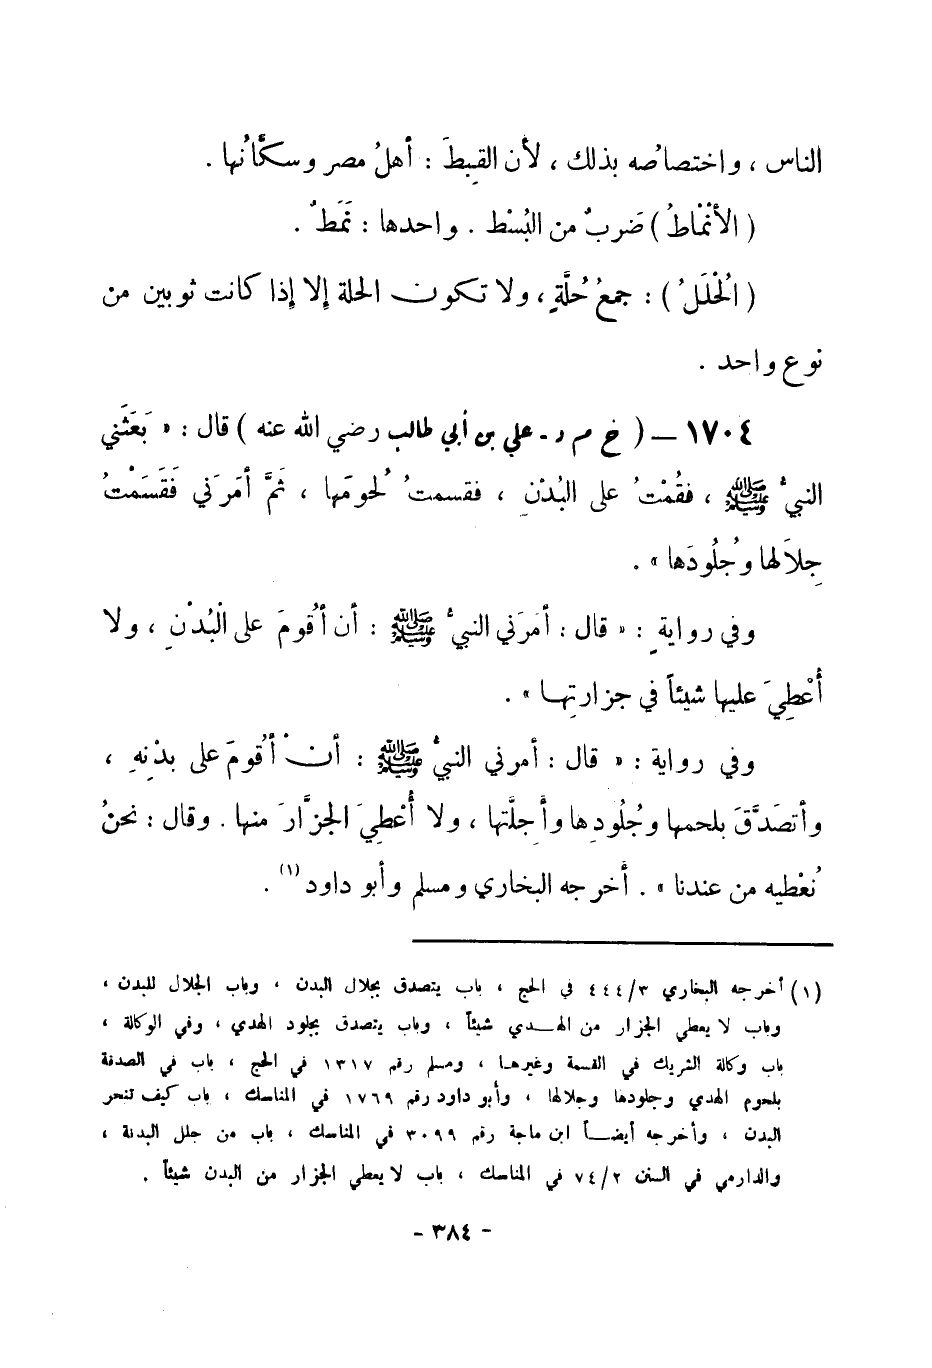 الناس ، واختصاصُه بذلك ، لأن القِبطَ : أهلُ مصر وسكَّانُها .
( الأنْمَاطُ ) ضَربٌ من البُسْط . واحدها : نَمَطٌ .
( الحُلَلُ ) : جمعُ حُلَّةٍ ، ولا تكون الحلة إلا إذا كانت ثوبين من
نوع واحد .
١٧٠٤ – ( خ م د - علي بن أبي طالب رضي الله عنه ) قال : « بَعَثَني
النبيُّ ﷺ ، فقُمْتُ على البُدْنِ ، فقسمتُ لُحومَها ، ثَمَّ أمَرَني فَقَسَمْتُ
جِلاَلها وجُلُودَها » .
وفي روايةٍ : « قال : أمَرَني النبيُّ ﷺ : أن أقُومَ على الْبُدْنِ ، ولا
أُعْطِيَ عليها شيئاً في جزارتِها » .
وفي رواية : « قال : أمرني النبيُّ ﷺ : أنْ أقُومَ على بدْنِهِ ،
وأتصَدَّقَ بلحمها وجُلُودِها وأجِلَّتها ، ولا أُعْطِيَ الجزَّارَ منها . وقال : نحنُ
نُعْطيه من عندنا » . أخرجه البخاري ومسلم وأبو داود (١) .
(١) أخرجه البخاري ٤٤٤/٣ في الحج ، باب يتصدق بجلال البدن ، وباب الجلال للبدن ،
وباب لا يعطي الجزار من الهـدي شيئاً ، وباب يتصدق بجلود الهدي ، وفي الوكالة ،
باب وكالة الشريك في القسمة وغيرها ، ومسلم رقم ١٣١٧ في الحج ، باب في الصدقة
بلحوم الهدي وجلودها وجلالها ، وأبو داود رقم ١٧٦٩ في المناسك ، باب كيف تنحر
البدن ، وأخرجه أيضـاً ابن ماجة رقم ٣٠٩٩ في المناسك ، باب من جلل البدنة ،
والدارمي في السنن ٧٤/٢ في المناسك ، باب لا يعطي الجزار من البدن شيئاً .
- ٣٨٤ -